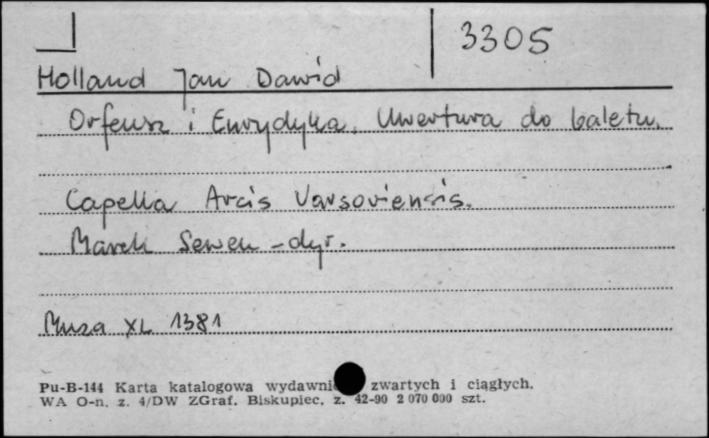 3305
Holland Jan Dawid
Orfeusz i Eurydyka. Uwertura do baletu.
Capella Arcis Varsoviensis.
Marek Sewen - dyr.
Muza XL 1381
Pu-B-144 Karta katalogowa wydawni zwartych i ciągłych.
WA O-n. z. 4/DW ZGraf. Biskupiec, z. 42-90 2 070 000 szt.